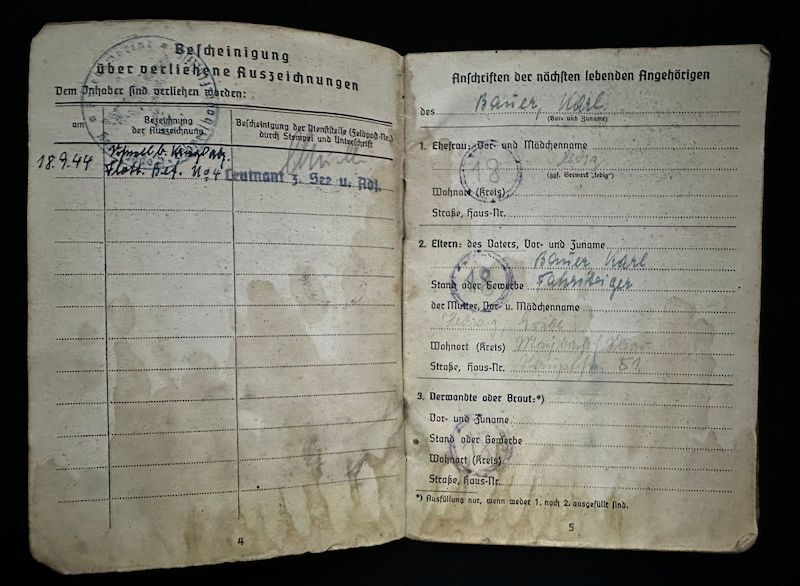 Bescheinigung
über verliehene Auszeichnungen
Dem Inhaber sind verliehen worden:
am
Bezeichnung
der Auszeichnung
Bescheinigung der Dienststelle (Feldpost-Nr.)
durch Stempel und Unterschrift
18.9.44
Leutnant z. See u. Adj.
4
Anschriften der nächsten lebenden Angehörigen
des Bauer, Karl
(Vor- und Zuname)
1. Ehefrau: Vor- und Mädchenname
18
ledig
(ggf. Vermerk "ledig")
Wohnort (Kreis)
Straße, Haus-Nr.
2. Eltern: des Vaters, Vor- und Zuname
Bauer Karl
18
Stand oder Gewerbe Fahrsteiger
der Mutter, Vor- u. Mädchenname
Wohnort (Kreis)
Straße, Haus-Nr. 51
3. Verwandte oder Braut:*)
Vor- und Zuname
Stand oder Gewerbe
Wohnort (Kreis)
Straße, Haus-Nr.
*) Ausfüllung nur, wenn weder 1. noch 2. ausgefüllt sind.
5